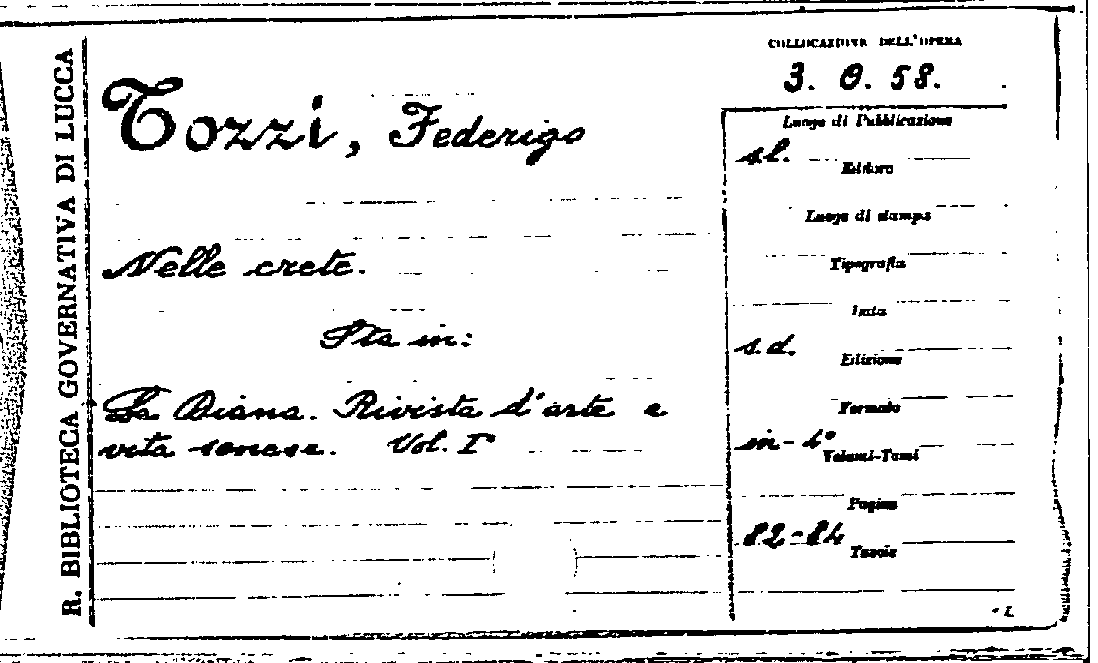 R. BIBLIOTECA GOVERNATIVA DI LUCCA
COLLOCAZIONE DELL'OPERA
3. 0. 58.
Tozzi, Federigo
Nelle crete.
Sta in:
La Diana. Rivista d'arte e
vita senese. Vol. I°
Luogo di Pubblicazione
s.l.
Editore
Luogo di stampa
Tipografia
Data
s.d.
Edizione
Formato
in-4°
Volumi-Tomi
Pagine
82-84
Tavole